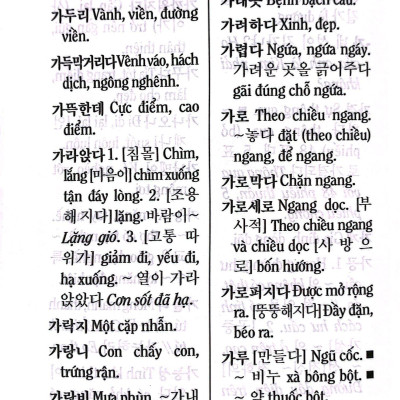 가두리 Vành, viền, đường
viền.
가득막거리다 Vênh váo, hách
dịch, ngông nghênh.
가뜩한데 Cực điểm, cao
điểm.
가라앉다 1. [침몰] Chìm,
lắng [마음이] chìm xuống
tận đáy lòng. 2. [조용
해지다] lặng. 바람이 ~
Lặng gió. 3. [고통 따
위가] giảm đi, yếu đi,
hạ xuống. ~ 열이 가라
앉았다 Cơn sốt đã hạ.
가락지 Một cặp nhẫn.
가랑니 Con chấy con,
trứng rận.
가랑비 Mưa phùn. ~가내
Bệnh bạch cầu.
가려하다 Xinh, đẹp.
가렵다 Ngứa, ngứa ngáy.
가려운 곳을 긁어주다
gãi đúng chỗ ngứa.
가로 Theo chiều ngang.
~놓다 đặt (theo chiều)
ngang, để ngang.
가로막다 Chặn ngang.
가로세로 Ngang dọc. [부
사적] Theo chiều ngang
và chiều dọc [사 방 으
로] bốn hướng.
가로퍼지다 Được mở rộng
ra. [뚱뚱해지다] Đầy đặn,
béo ra.
가루 [만들다] Ngũ cốc. ■
~ 비누 xà bông bột. ■
~ 약 thuốc bột.